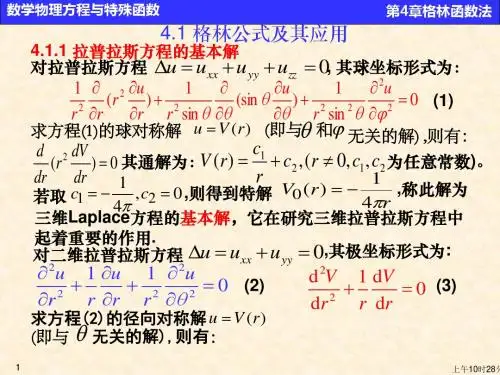 数学物理方程与特殊函数 第4章格林函数法
4.1 格林公式及其应用
4.1.1 拉普拉斯方程的基本解
对拉普拉斯方程 Δu = u_xx + u_yy + u_zz = 0, 其球坐标形式为：
1/r² ∂/∂r (r² ∂u/∂r) + 1/(r² sin θ) ∂/∂θ (sin θ ∂u/∂θ) + 1/(r² sin² θ) ∂²u/∂φ² = 0 (1)
求方程(1)的球对称解 u = V(r) (即与θ 和φ 无关的解),则有:
d/dr (r² dV/dr) = 0 其通解为: V(r) = c₁/r + c₂, (r ≠ 0, c₁, c₂为任意常数)。
若取 c₁ = −1/4π, c₂ = 0 ,则得到特解 V₀(r) = −1/(4πr) ,称此解为
三维Laplace方程的基本解，它在研究三维拉普拉斯方程中
起着重要的作用.
对二维拉普拉斯方程 Δu = u_xx + u_yy = 0,其极坐标形式为：
∂²u/∂r² + 1/r ∂u/∂r + 1/r² ∂²u/∂θ² = 0 (2) d²V/dr² + 1/r dV/dr = 0 (3)
求方程(2)的径向对称解 u = V(r)
(即与 θ 无关的解),则有:
1 上午10时28